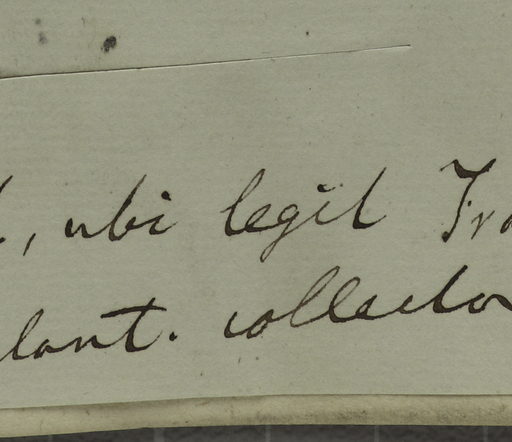 , ubi legit Fra
lant. collector